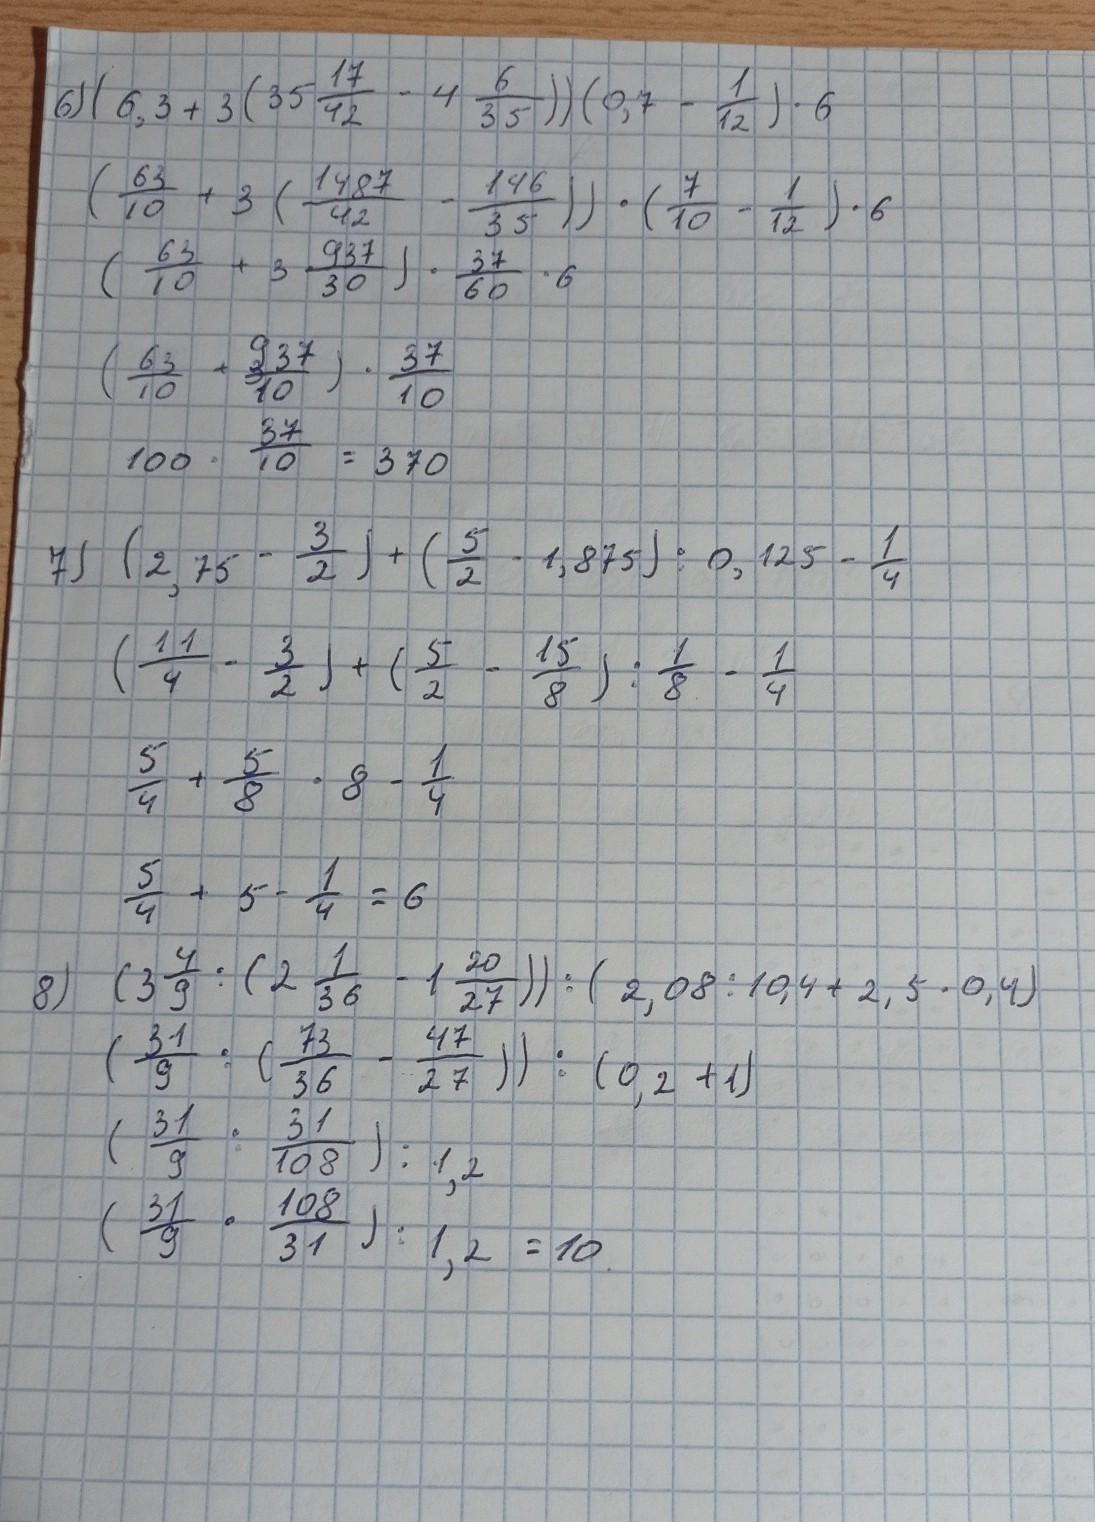 6) (6,3 + 3(35 17/42 - 4 6/35))(0,7 - 1/12) · 6
(63/10 + 3(1487/42 - 146/35)) · (7/10 - 1/12) · 6
(63/10 + 3 937/30) · 37/60 · 6
(63/10 + 937/10) · 37/10
100 · 37/10 = 370
7) (2,75 - 3/2) + (5/2 - 1,875) : 0,125 - 1/4
(11/4 - 3/2) + (5/2 - 15/8) : 1/8 - 1/4
5/4 + 5/8 · 8 - 1/4
5/4 + 5 - 1/4 = 6
8) (3 4/9 : (2 1/36 - 1 20/27)) : (2,08 : 10,4 + 2,5 · 0,4)
(31/9 : (73/36 - 47/27)) : (0,2 + 1)
(31/9 : 31/108) : 1,2
(31/9 · 108/31) : 1,2 = 10.